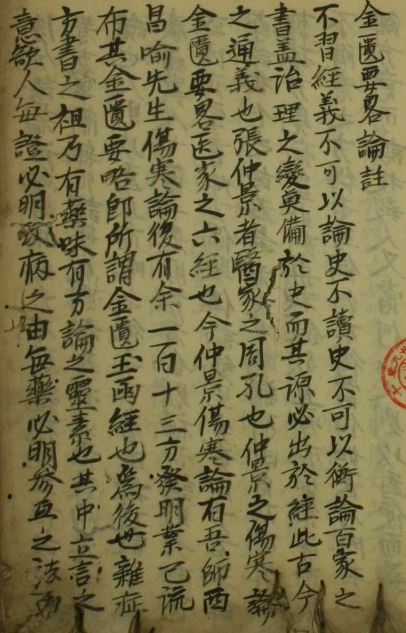 金匱要畧論註
不習經義不可以論史不讀史不可以衡論百家之
書盖治理之變莫備於史而其源必出於經此古今
之通義也張仲景者醫家之周孔也仲景之傷寒論
金匱要畧医家之六經也今仲景傷寒論有吾師西
昌喻先生傷寒論後有余一百十三方發明業已流
布其金匱要略即所謂金匱玉函經也為後世雜症
方書之祖乃有藥味有方論之靈素也其中立言之
意欲人每證必明致病之由每藥必明參互之法